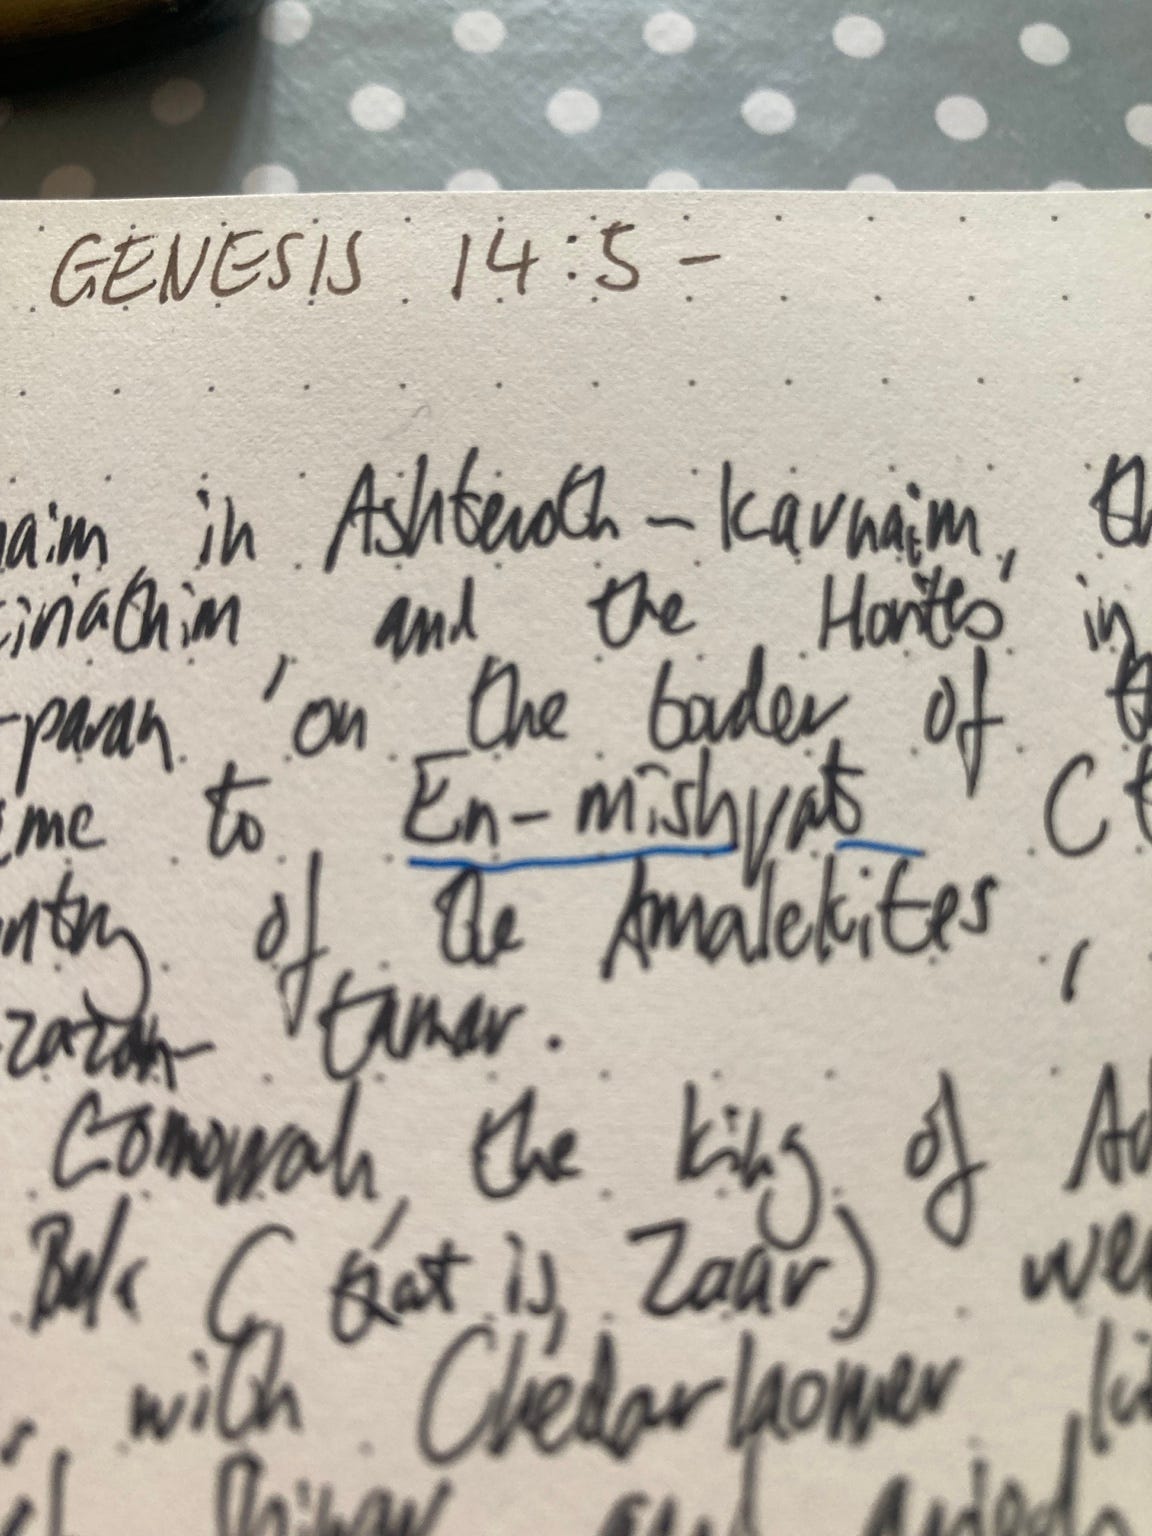 GENESIS 14:5 -
naim in Ashteroth - Karnaim, th
iriathim, and the Horites in
-paran on the border of t
me to En-mishpat (t
ntry of the Amalekites,
zazon- tamar.
Gomorrah, the king of Ad
Bela (that is, Zoar) we
with Chedorlaomer ki
Shinar and arioch